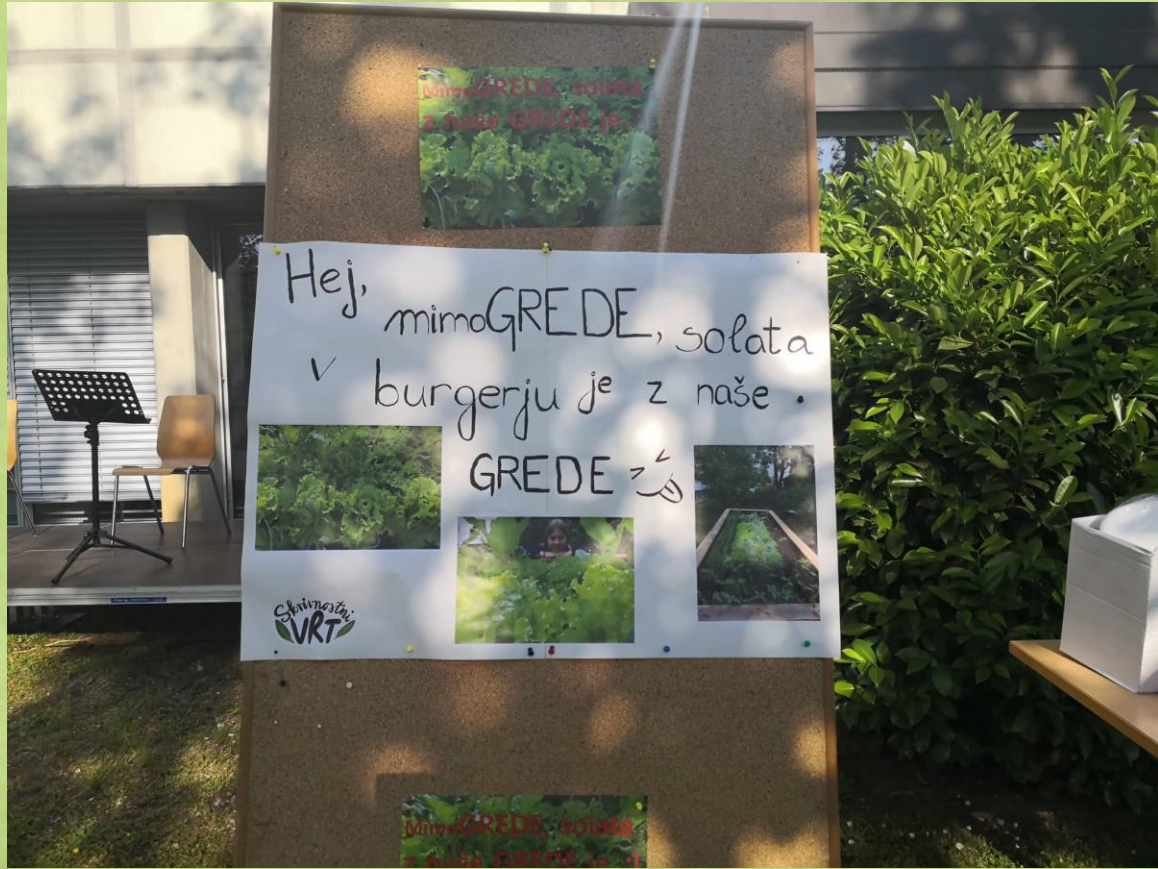 MimoGREDE, solata
z naše GREDE je.
Hej,
mimoGREDE, solata
v burgerju je z naše
GREDE
Skrivnostni
VRT
MimoGREDE, solata
z naše GREDE je. :)